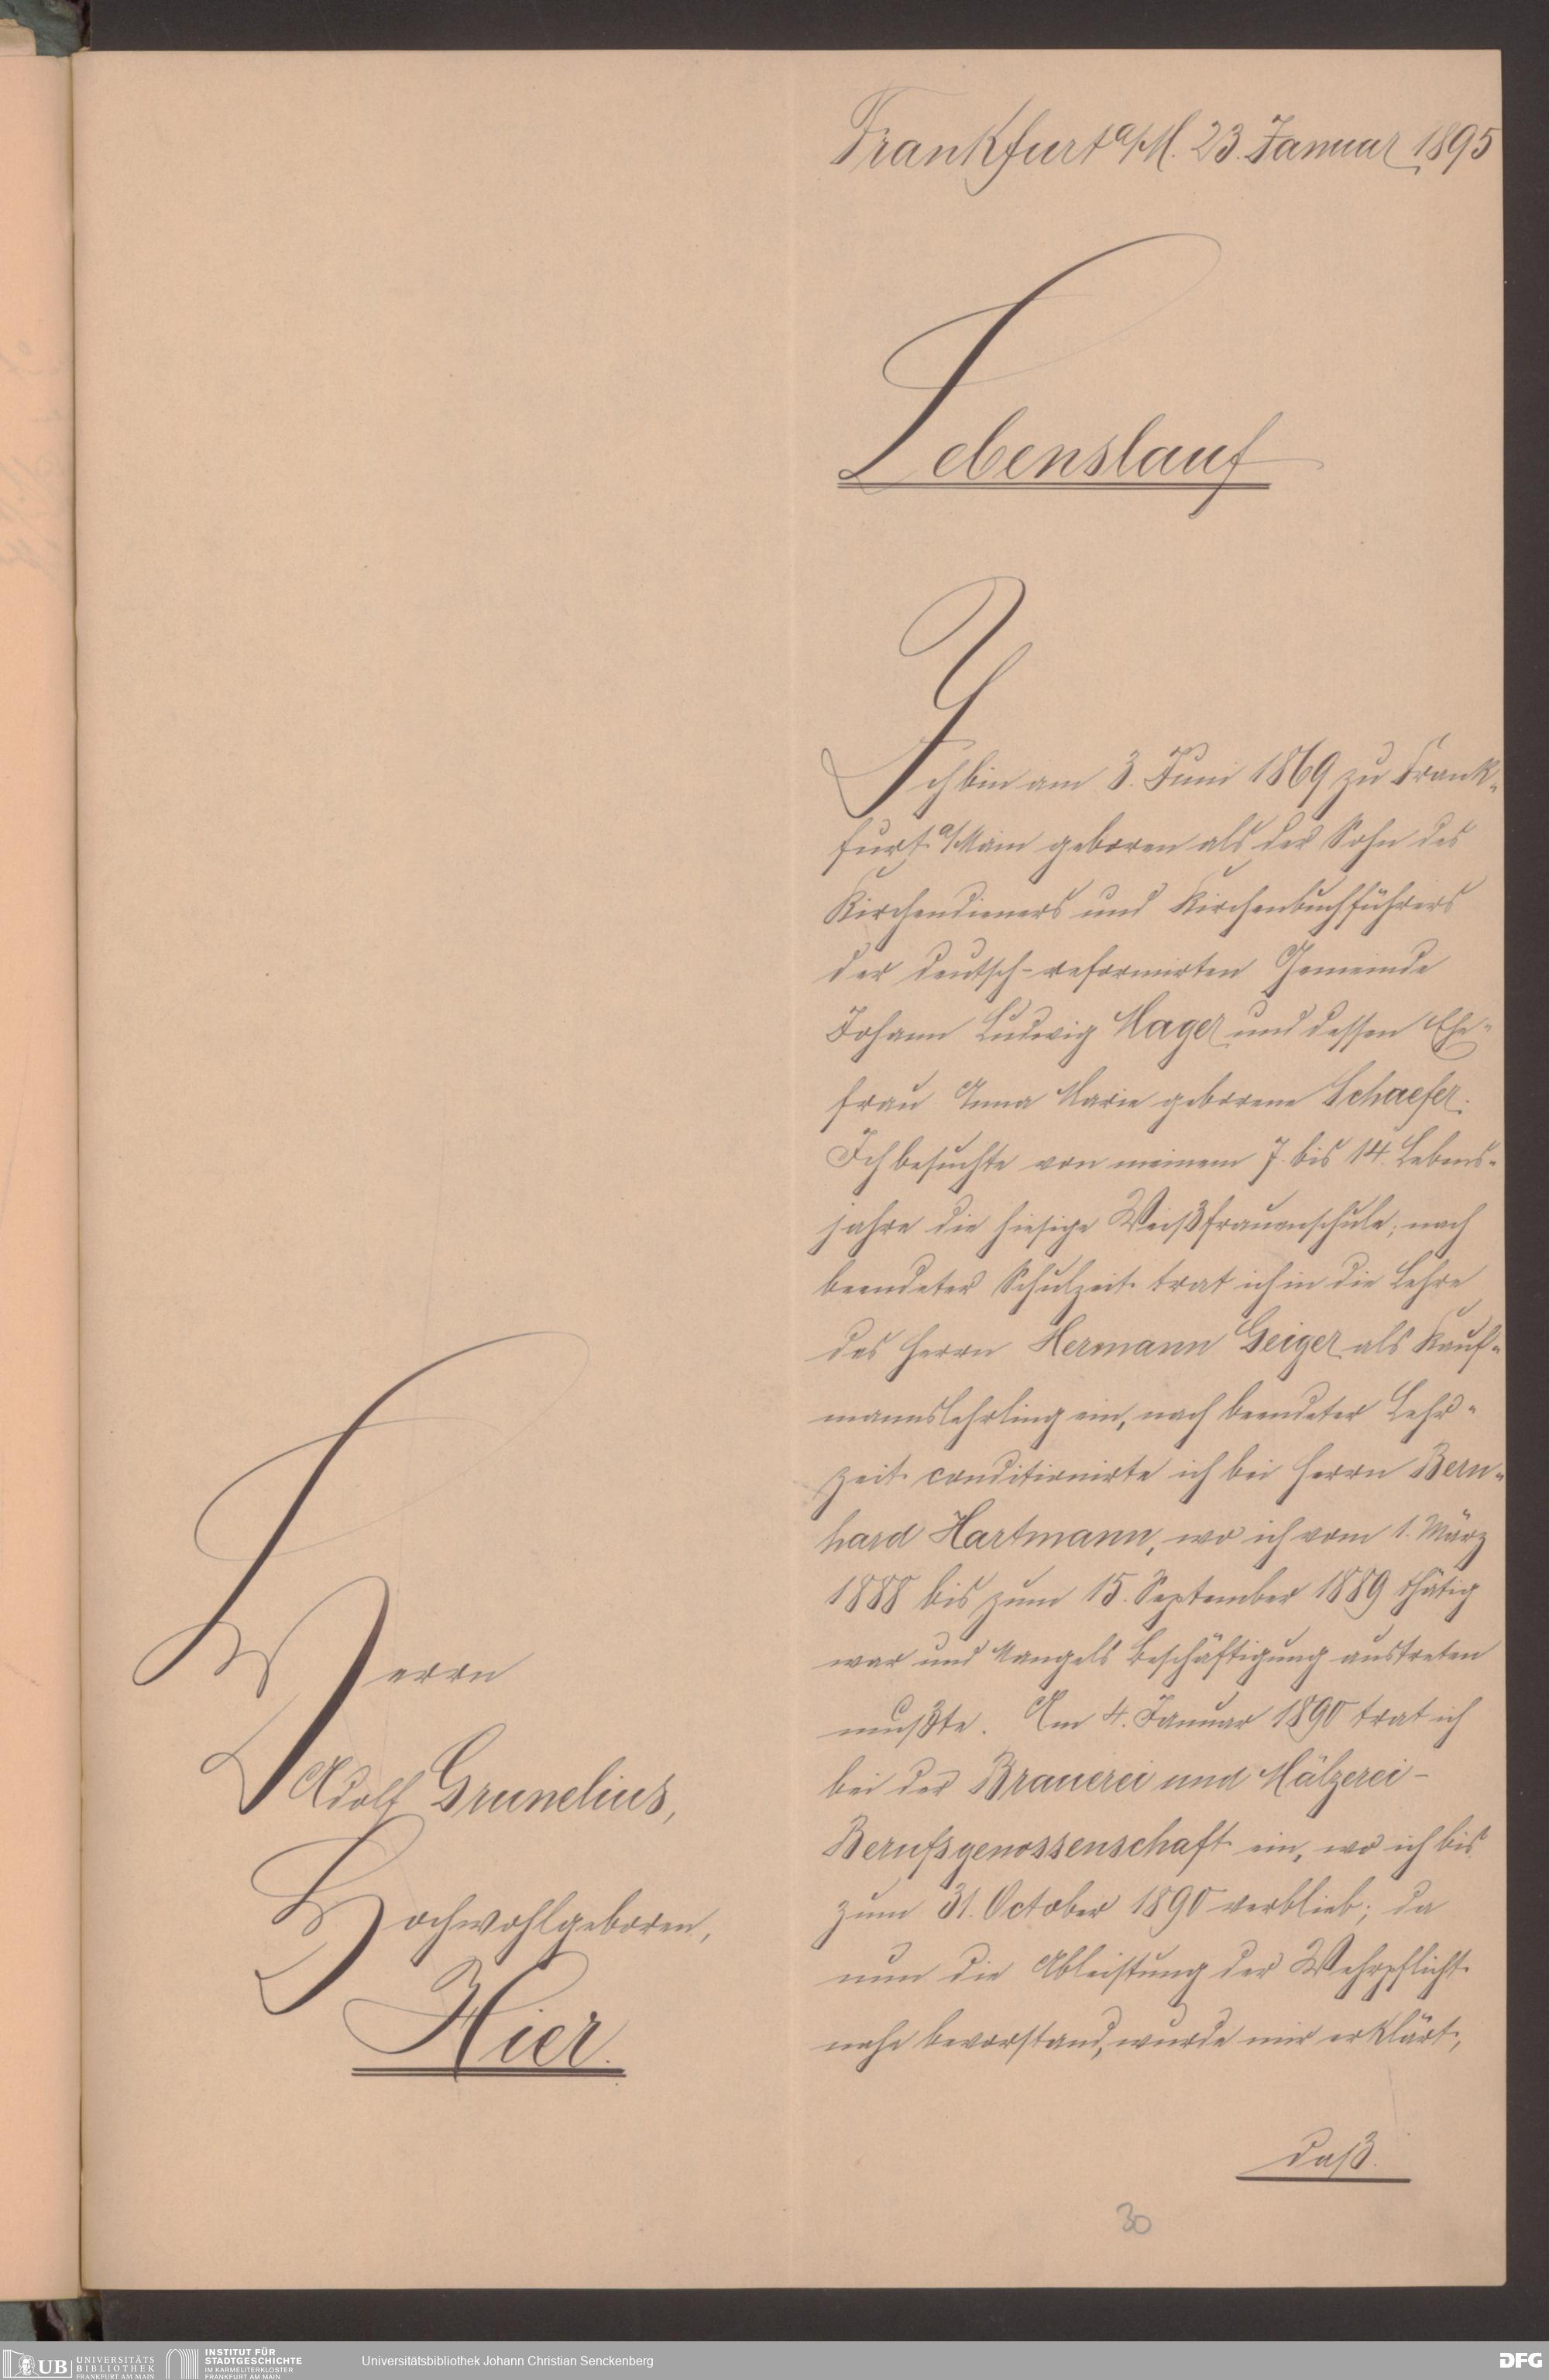 Frankfurt a/M. 23. Januar 1895
Lebenslauf
Ich bin am 3. Juni 1869 zu Frank-
furt a/Main geboren als der Sohn des
Kirchendieners und Kirchenbuchführers
der deutsch-reformirten Gemeinde
Johann Ludwig Mager und dessen Ehe-
frau Anna Marie geborene Schaefer.
Ich besuchte von meinem 7. bis 14. Lebens-
jahre die hiesige Weißfrauenschule; nach
beendeter Schulzeit trat ich in die Lehre
des Herrn Hermann Geiger als Kauf-
mannslehrling ein, nach beendeter Lehr-
zeit conditionirte ich bei Herrn Bern-
hard Hartmann, wo ich vom 1. März
1888 bis zum 15. September 1889 thätig
war und Mangels Beschäftigung austreten
mußte. Am 4. Januar 1890 trat ich
bei der Brauerei und Mälzerei-
Berufsgenossenschaft ein, wo ich bis
zum 31. October 1890 verblieb; da
nun die Ableistung der Wehrpflicht
nahe bevorstand, wurde mir erklärt,
daß.
30
Herrn
Adolf Grunelius,
Hochwohlgeboren,
Hier.
UB UNIVERSITÄTS BIBLIOTHEK FRANKFURT AM MAIN
INSTITUT FÜR STADTGESCHICHTE IM KARMELITERKLOSTER FRANKFURT AM MAIN
Universitätsbibliothek Johann Christian Senckenberg
DFG